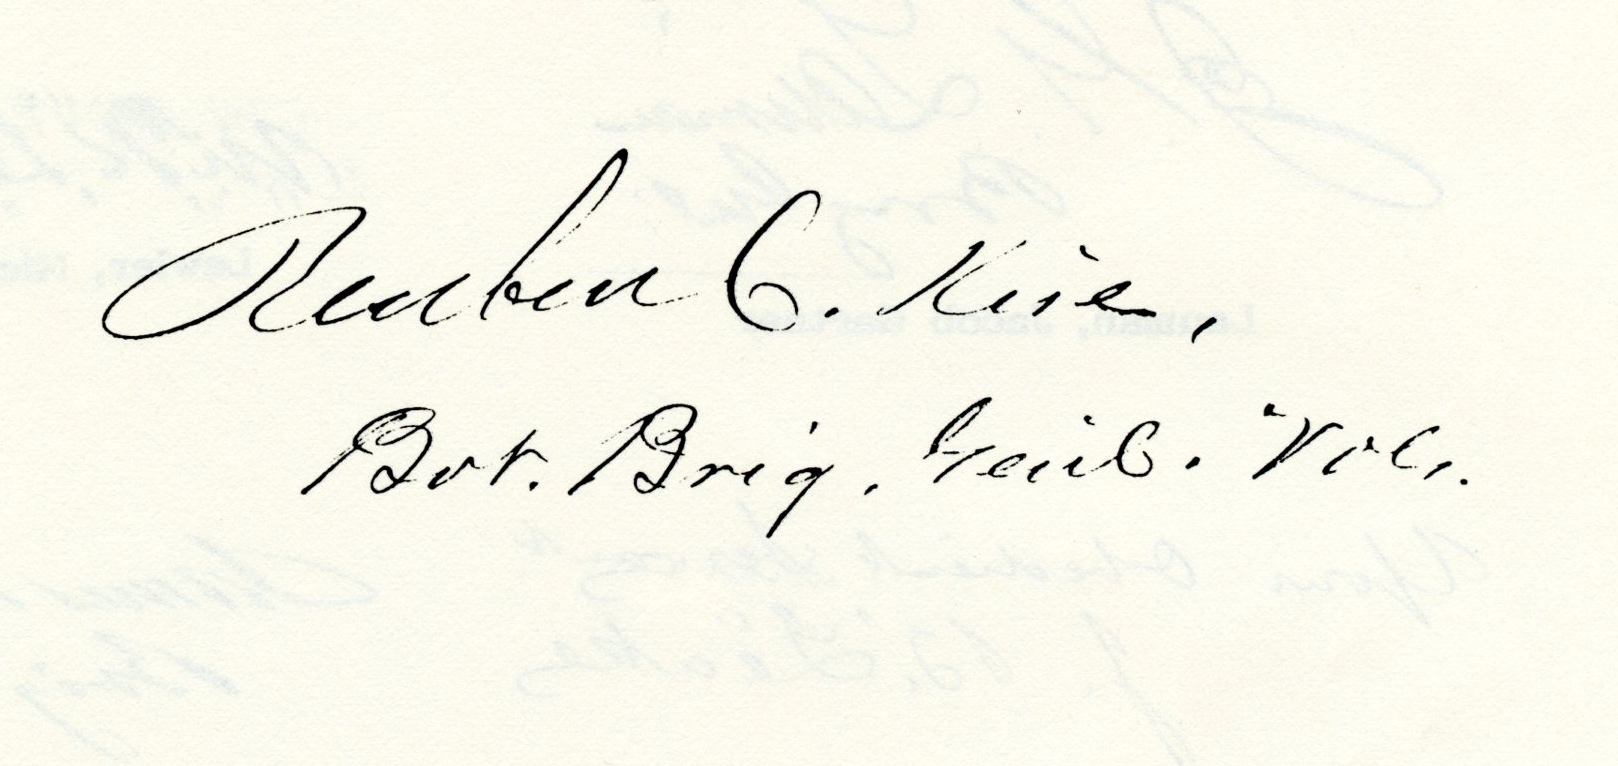 Reuben C. Kise,
Bvt. Brig. Genl. Vols.